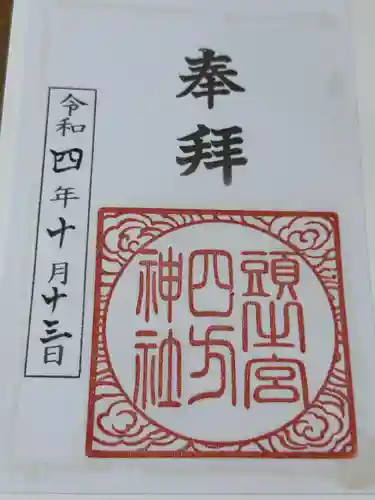 奉拝
頭之宮
四方
神社
令和四年十月十三日